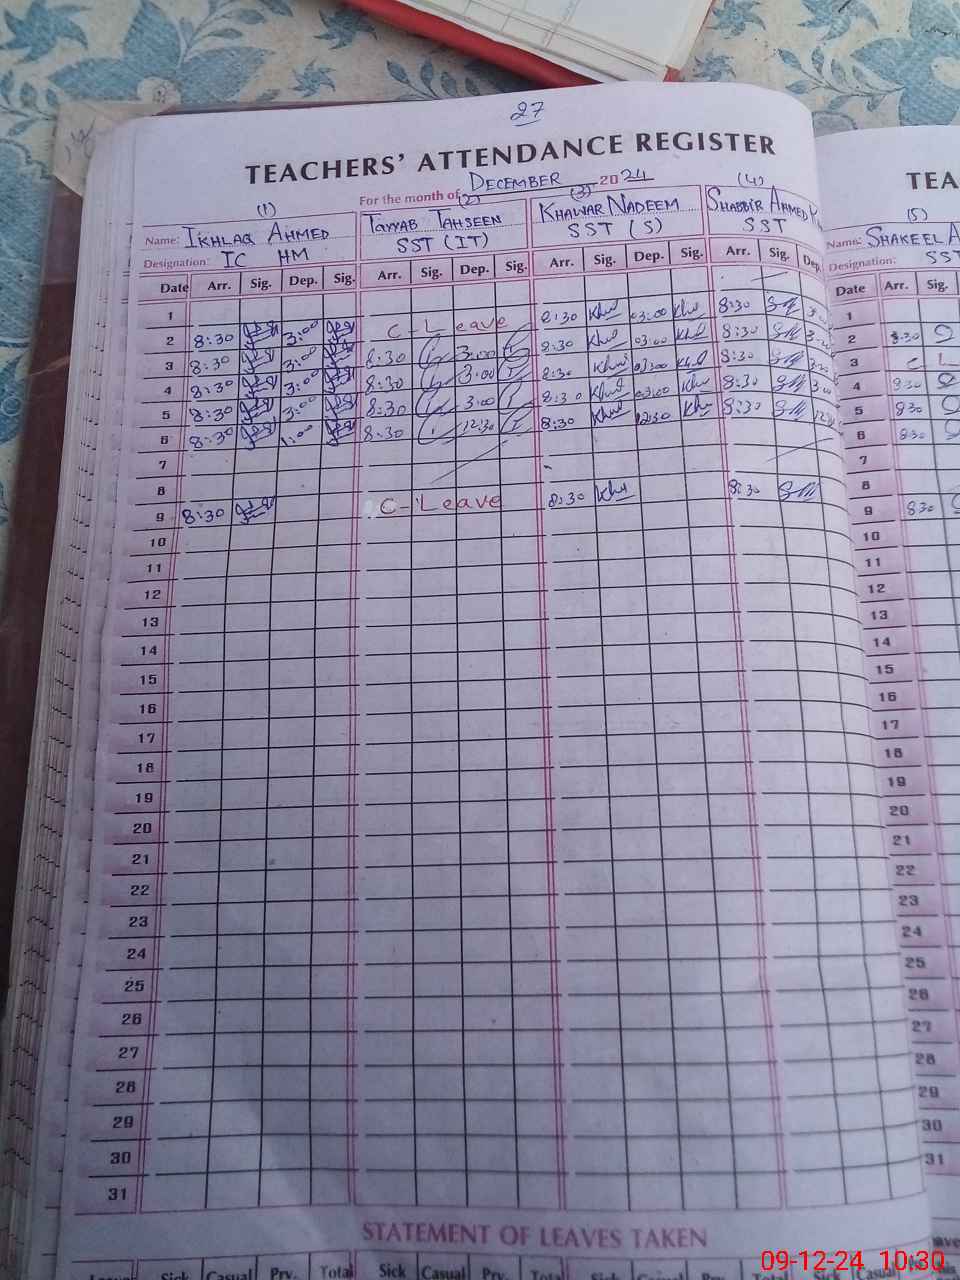 27
TEACHERS' ATTENDANCE REGISTER
For the month of DECEMBER 2024
(1) (2) (3) (4)
Name: IKHLAQ AHMED TAYYAB TAHSEEN KHAWAR NADEEM SHABBIR AHMED
Designation: IC HM SST (IT) SST (S) SST
Date Arr. Sig. Dep. Sig. Arr. Sig. Dep. Sig. Arr. Sig. Dep. Sig. Arr. Sig. Dep.
1
2 8:30 3:00 C-Leave 8:30 03:00 8:30
3 8:30 3:00 8:30 3:00 8:30 03:00 8:30
4 8:30 3:00 8:30 3:00 8:30 03:00 8:30
5 8:30 3:00 8:30 3:00 8:30 03:00 8:30 3:00
6 8:30 1:00 8:30 12:30 8:30 12:30 8:30
7
8
9 8:30 C-Leave 8:30 8:30
10
11
12
13
14
15
16
17
18
19
20
21
22
23
24
25
26
27
28
29
30
31
STATEMENT OF LEAVES TAKEN
Sick Casual Prv. Total Sick Casual Prv. Total Sick Casual Prv. Total Sick Casual
TEA
(5)
Name: SHAKEEL A
Designation: SST
Date Arr. Sig.
1
2 8:30
3 C L
4 8:30
5 8:30
6 8:30
7
8
9 8:30
10
11
12
13
14
15
16
17
18
19
20
21
22
23
24
25
26
27
28
29
30
31
09-12-24 10:30